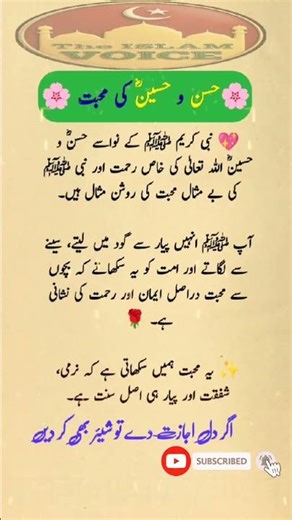 The ISLAM
VOICE
🌸 حسنؓ و حسینؓ کی محبت 🌸
💖 نبی کریم ﷺ کے نواسے حسنؓ و
حسینؓ اللہ تعالیٰ کی خاص رحمت اور نبی ﷺ
کی بے مثال محبت کی روشن مثال ہیں۔
آپ ﷺ انہیں پیار سے گود میں لیتے، سینے
سے لگاتے اور امت کو یہ سکھاتے کہ بچوں
سے محبت دراصل ایمان اور رحمت کی نشانی
ہے۔ 🌹
✨ یہ محبت ہمیں سکھاتی ہے کہ نرمی،
شفقت اور پیار ہی اصل سنت ہے۔
اگر دل اجازت دے تو شیئر بھی کر دیں
SUBSCRIBED